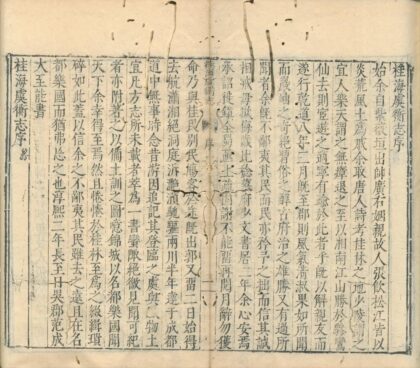 桂海虞衡志序
始余自紫薇垣出帥廣右姻親故人張飲松江皆以
炎荒風土為戚余取唐人詩考桂林之地少陵謂之
宜人樂天謂之無瘴退之至以湘南江山勝於驂鸞
仙去則宦遊之適寧有踰於此者乎既以解親友而
遂行乾道八年三月既至郡則風氣清淑果如所聞
而巖岫之奇絕習俗之醇古府治之雄勝又有過所
聞者余既不鄙夷其民而民亦矜予之拙而信其誠
相戒毋欺侮歲比稔幕府少文書居二年余心安焉
承詔徙鎮全蜀亟上疏固謝不能留再閱月辭勿獲
命乃與桂民別民觴客於途既出郭又留二日始得
去航瀟湘絕洞庭泝灩澦馳驅兩川半年達于成都
道中無事時念昔游因追記其登臨之處與風物土
宜凡方志所未載者萃為一書蠻陬絕徼見聞可紀
者亦附著之以備土訓之圖噫錦城以名都樂國聞
天下余幸得至焉然且惓惓於桂林至為之綴緝瑣
碎如此蓋以信余之不鄙夷其民雖去之遠且在名
都樂國而猶弗忘之也淳熙二年長至日吳郡范成
大至能書
桂海虞衡志序 終